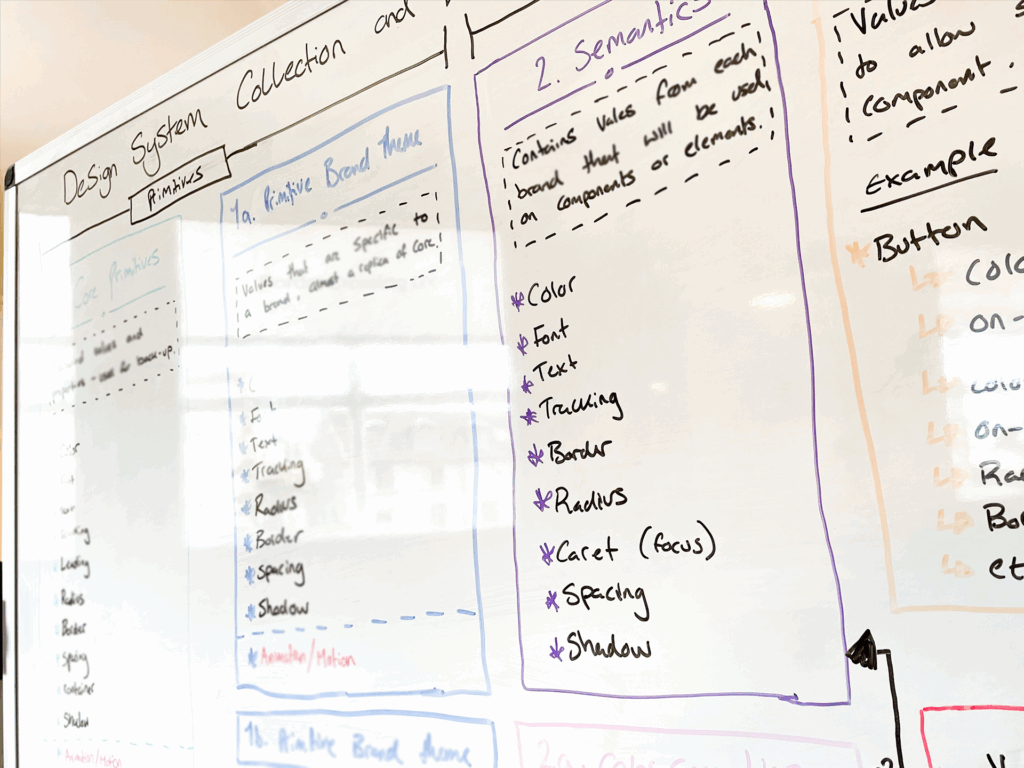 Design System Collection and
Primitives
Core Primitives
values and
used for back-up.
Leading
Radius
Border
Spacing
Container
Shadow
Animation/Motion
1a. Primitive Brand Theme
Values that are specific to
a brand, almost a replica of Core.
* Text
* Tracking
* Radius
* Border
* Spacing
* Shadow
* Animation/Motion
1b. Primitive Brand theme
2. Semantics
Contains vales from each
brand that will be used
on components or elements.
* Color
* Font
* Text
* Tracking
* Border
* Radius
* Caret (focus)
* Spacing
* Shadow
2a. Color
Values
to allow
component.
Example
* Button
↳ Colo
↳ on-
↳ colo
↳ on-
↳ Rad
↳ Bor
↳ et